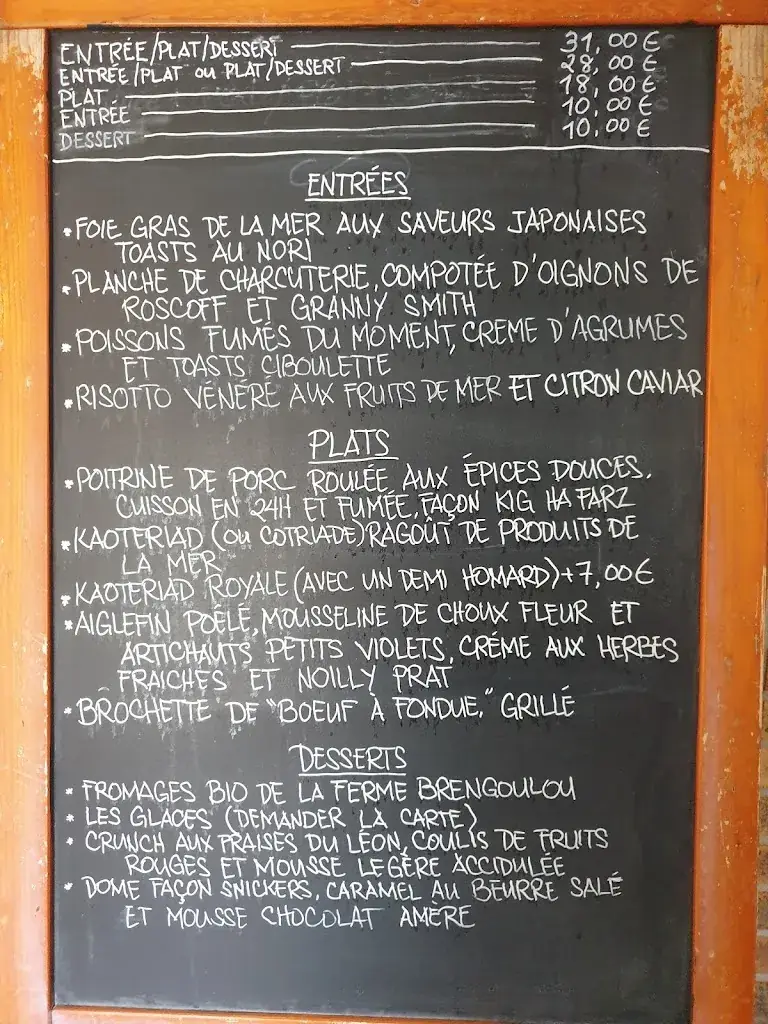 ENTRÉE/PLAT/DESSERT 31,00€
ENTRÉE/PLAT OU PLAT/DESSERT 28,00€
PLAT 18,00€
ENTRÉE 10,00€
DESSERT 10,00€
ENTRÉES
* FOIE GRAS DE LA MER AUX SAVEURS JAPONAISES
TOASTS AU NORI
* PLANCHE DE CHARCUTERIE, COMPOTÉE D'OIGNONS DE
ROSCOFF ET GRANNY SMITH
* POISSONS FUMÉS DU MOMENT, CREME D'AGRUMES
ET TOASTS CIBOULETTE
* RISOTTO VÉNÉRÉ AUX FRUITS DE MER ET CITRON CAVIAR
PLATS
* POITRINE DE PORC ROULÉE AUX ÉPICES DOUCES,
CUISSON EN 24H ET FUMÉE, FAÇON KIG HA FARZ
* KAOTERIAD (OU COTRIADE) RAGOÛT DE PRODUITS DE
LA MER
* KAOTERIAD ROYALE (AVEC UN DEMI HOMARD) + 7,00€
* AIGLEFIN POÊLÉ, MOUSSELINE DE CHOUX FLEUR ET
ARTICHAUTS PETITS VIOLETS, CRÉME AUX HERBES
FRAICHES ET NOILLY PRAT
* BROCHETTE DE "BOEUF À FONDUE," GRILLÉ
DESSERTS
* FROMAGES BIO DE LA FERME BRENGOULOU
* LES GLACES (DEMANDER LA CARTE)
* CRUNCH AUX FRAISES DU LÉON, COULIS DE FRUITS
ROUGES ET MOUSSE LEGÈRE ACCIDULÉE
* DOME FAÇON SNICKERS, CARAMEL AU BEURRE SALÉ
ET MOUSSE CHOCOLAT AMÈRE